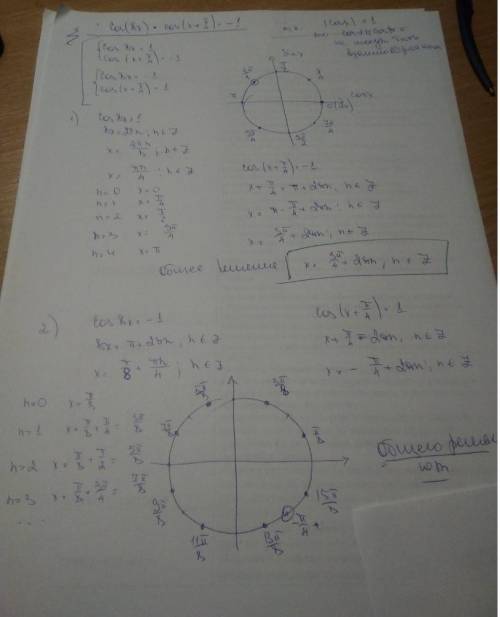 cos(8x) · cos(x + π/4) = -1
т.к. |cos| ≤ 1
{ cos 8x = 1
cos(x + π/4) = -1
{ cos 8x = -1
cos(x + π/4) = 1
sin x
cos x
1) cos 8x = 1
8x = 2πn; n ∈ Z
x = 2πn/8; n ∈ Z
x = πn/4; n ∈ Z
n=0 x=0
n=1 x= π/4
n=2 x= π/2
n=3 x= 3π/4
n=4 x= π
cos(x + π/4) = -1
x + π/4 = π + 2πn; n ∈ Z
x = π - π/4 + 2πn; n ∈ Z
x = 3π/4 + 2πn; n ∈ Z
Общее решение x = 3π/4 + 2πn; n ∈ Z
2) cos 8x = -1
8x = π + 2πn; n ∈ Z
x = π/8 + πn/4; n ∈ Z
cos(x + π/4) = 1
x + π/4 = 2πn; n ∈ Z
x = - π/4 + 2πn; n ∈ Z
n=0 x= π/8
n=1 x= π/8 + π/4 = 3π/8
n=2 x= π/8 + π/2 = 5π/8
n=3 x= π/8 + 3π/4 = 7π/8
...
5π/8
3π/8
7π/8
π/8
9π/8
15π/8
11π/8
13π/8
-π/4
Общего решения
нет